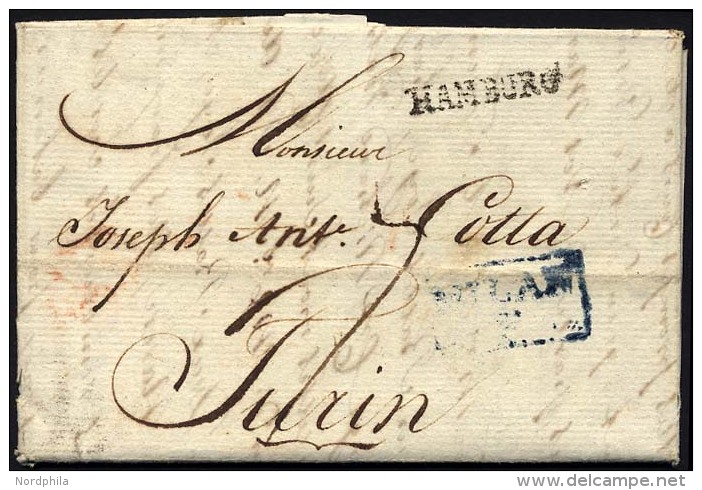 HAMBURG
Monsieur
Joseph Ant.e Cotta
MILAN
Turin
Nordphila
delcampe.net